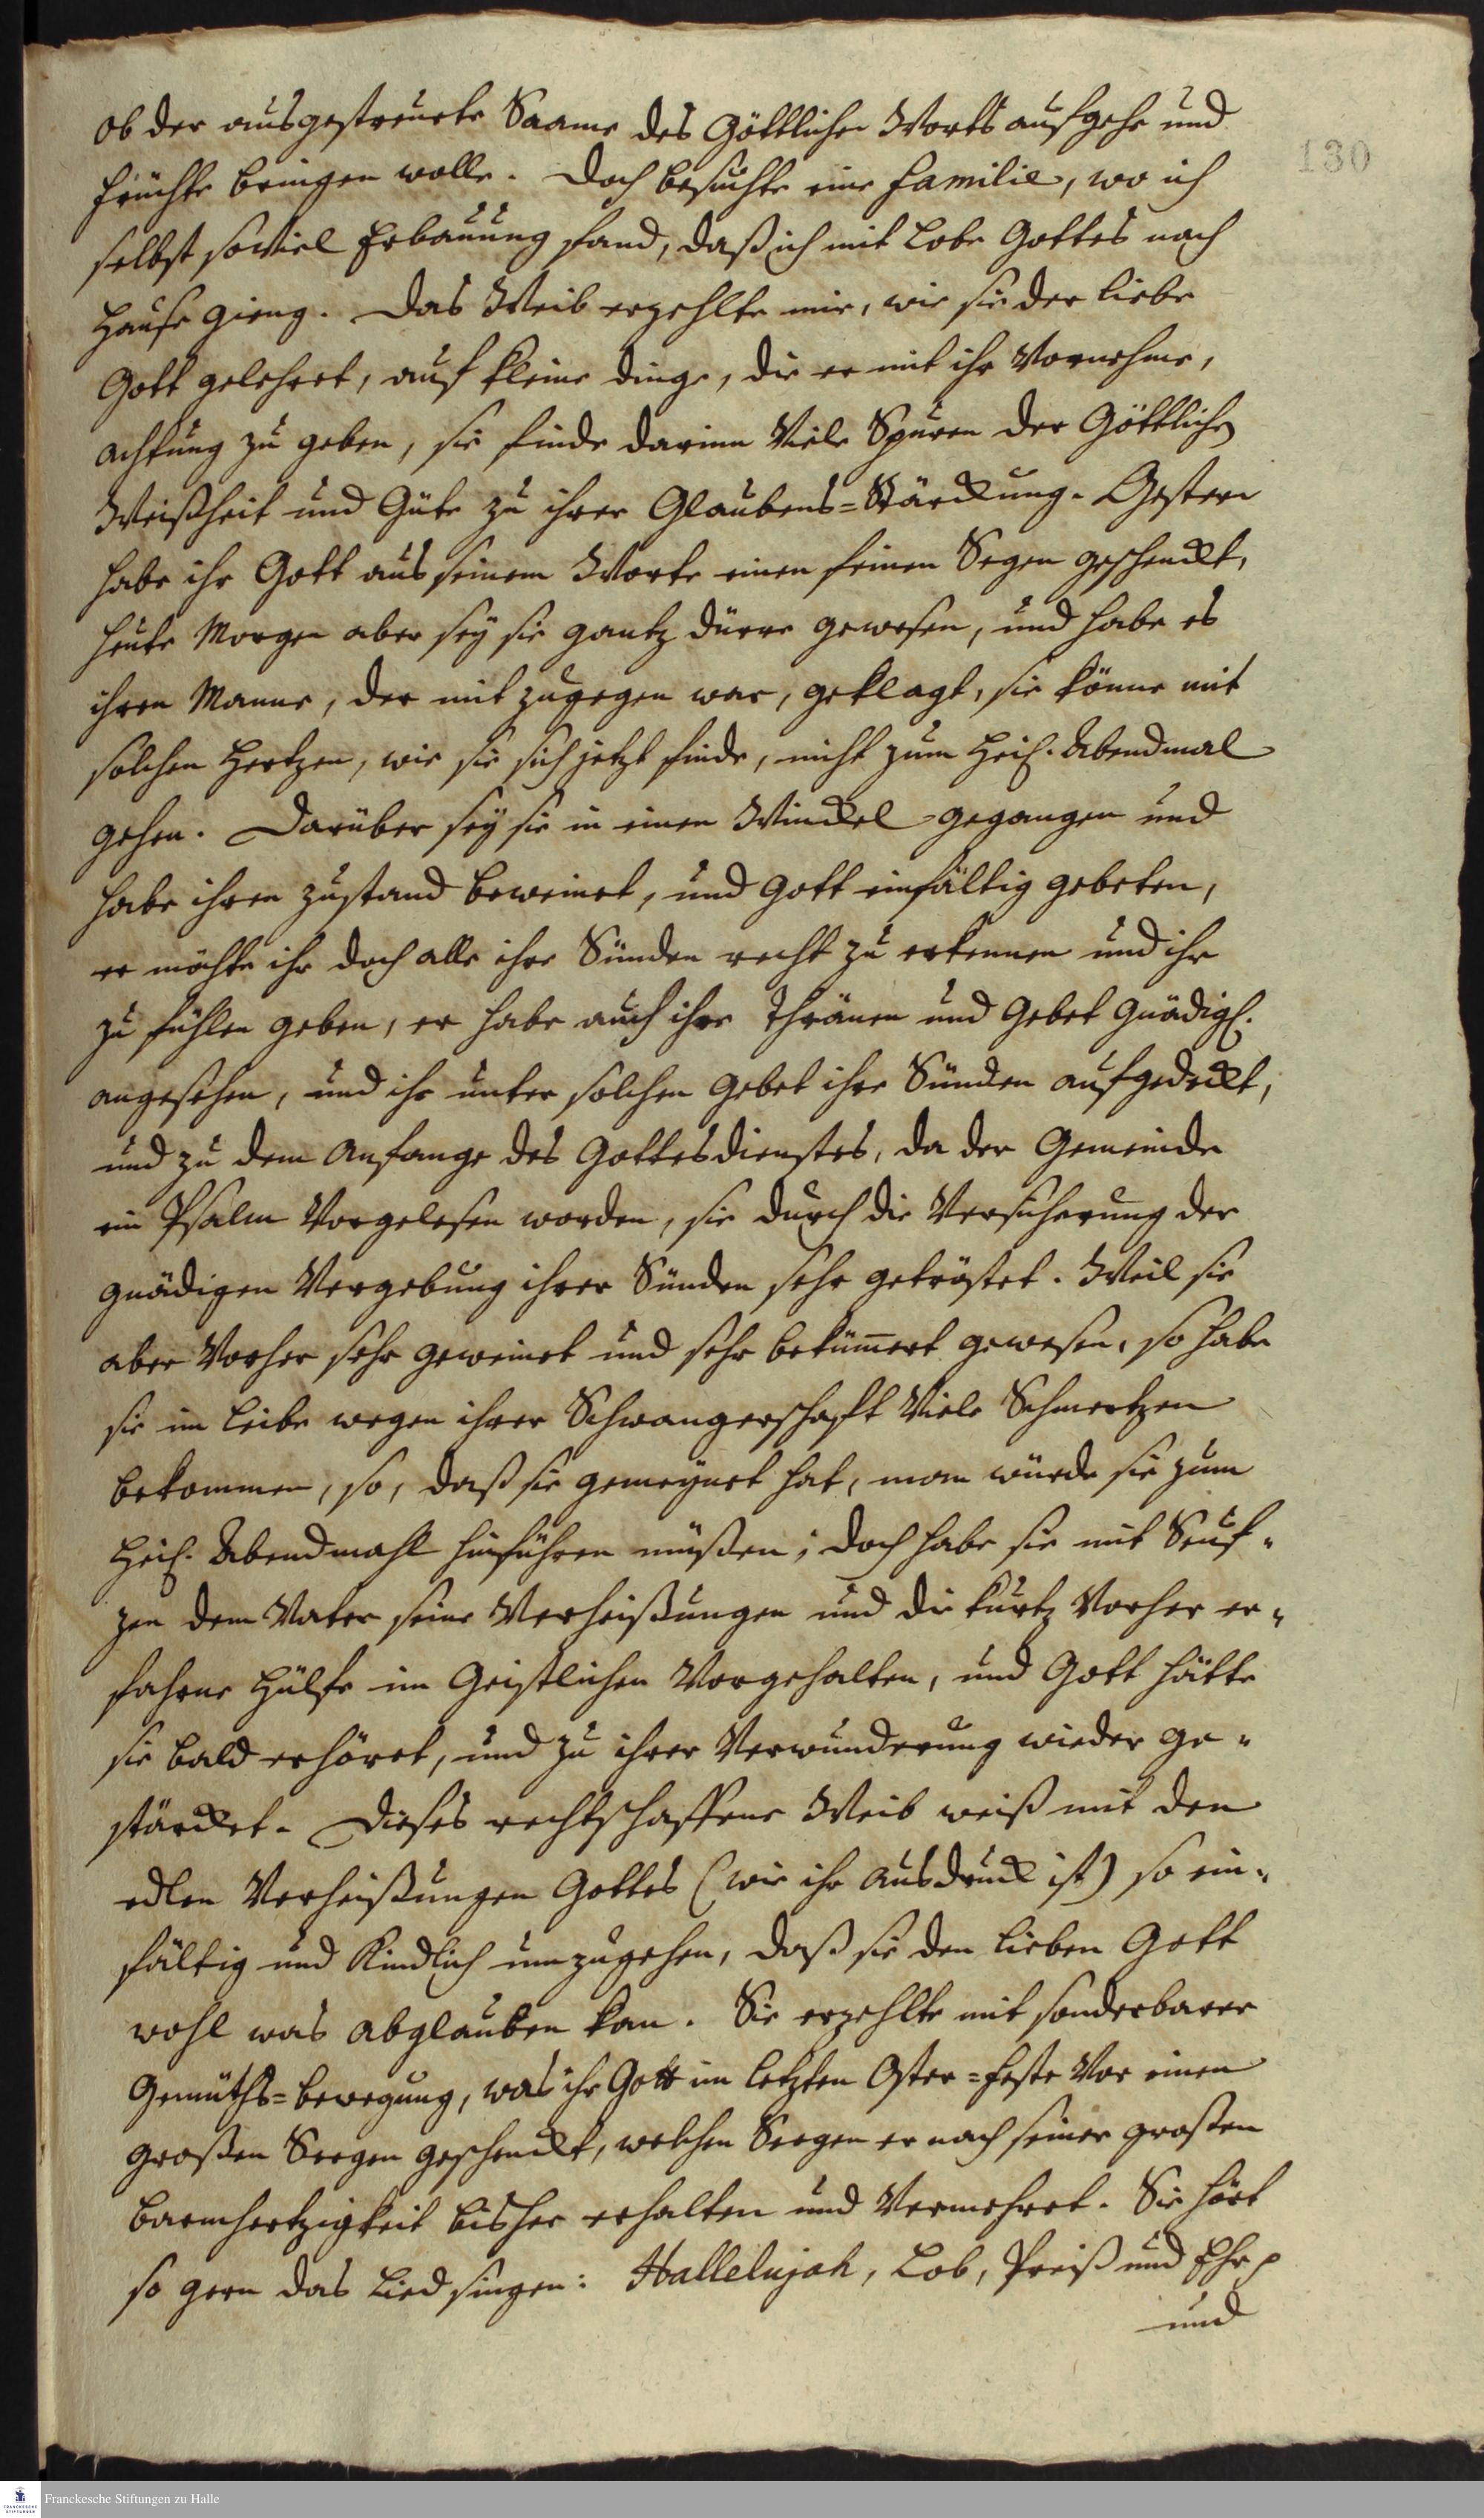 130
ob der ausgestreuete Saame des Göttlichen Worts aufgehe und
Früchte bringen wolle. Doch besuchte eine Familie, wo ich
selbst soviel Erbauung fand, daß ich mit Lobe Gottes nach
Hause gieng. Das Weib erzehlte mir, wie sie der liebe
Gott gelehret, auf kleine dinge, die er mit ihr Vornehme,
achtung zu geben, sie finde darinn Viele Spuren der Göttlichen
Weißheit und Güte zu ihrer Glaubens=Stärckung. Gestern
habe ihr Gott aus seinem Worte einen feinen Segen geschenckt,
heute Morgen aber sey sie gantz dürre gewesen, und habe es
ihren Manne, der mit zugegen war, geklagt, sie könne mit
solchen Hertzen, wie sie sich jetzt finde, nicht zum Heil. Abendmal
gehen. Darüber sey sie in einen Winckel gegangen und
habe ihren zustand beweinet, und Gott einfältig gebeten,
er möchte ihr doch alle ihre Sünden recht zu erkennen und ihr
zu fühlen geben, er habe auch ihre Thränen und Gebet gnädigl.
angesehen, und ihr unter solchen Gebet ihre Sünden aufgedeckt,
und zu dem Anfange des Gottesdienstes, da der Gemeinde
ein Psalm Vorgelesen worden, sie durch die Versicherung der
gnädigen Vergebung ihrer Sünden sehr getröstet. Weil sie
aber Vorher sehr geweinet und sehr bekümmert gewesen, so habe
sie im Leibe wegen ihrer Schwangerschaft Viele Schmertzen
bekommen, so, daß sie gemeynet hat, man würde sie zum
Heil. Abendmahl hinführen müßen; doch habe sie mit Seuf-
zen dem Vater seine Verheißungen und die kurtz Vorher er-
fahrne Hülfe im Geistlichen Vorgehalten, und Gott hätte
sie bald erhöret, und zu ihrer Verwunderung wieder ge-
stärcket. Dieses rechtschaffene Weib weiß mit den
edlen Verheißungen Gottes (wie ihr Ausdruck ist) so ein-
fältig und Kindlich umzugehen, daß sie den lieben Gott
wohl was abglauben kan. Sie erzehlte mit sonderbarer
Gemüths=bewegung, was ihr Gott im letzten Oster=feste Vor einen
großen Seegen geschenckt, welchen Seegen er nach seiner großen
Barmhertzigkeit bisher erhalten und Vermehret. Sie hört
so gern das Lied singen: Hallelujah, Lob, Preiß und Ehr p
und
Franckesche Stiftungen zu Halle